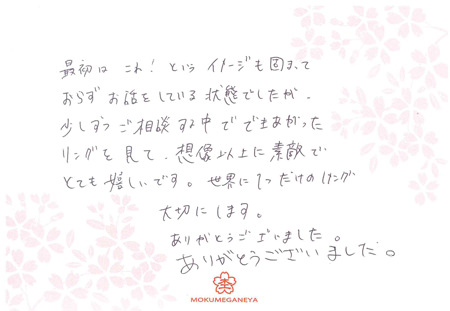 最初は これ！という イメージも固まって
おらず お話をしている 状態でしたが、
少しずつ ご相談する中で できあがった
リングを 見て、想像以上に 素敵で
とても 嬉しいです。世界に1つだけのリング
大切にします。
ありがとうございました。
ありがとうございました。
MOKUMEGANEYA